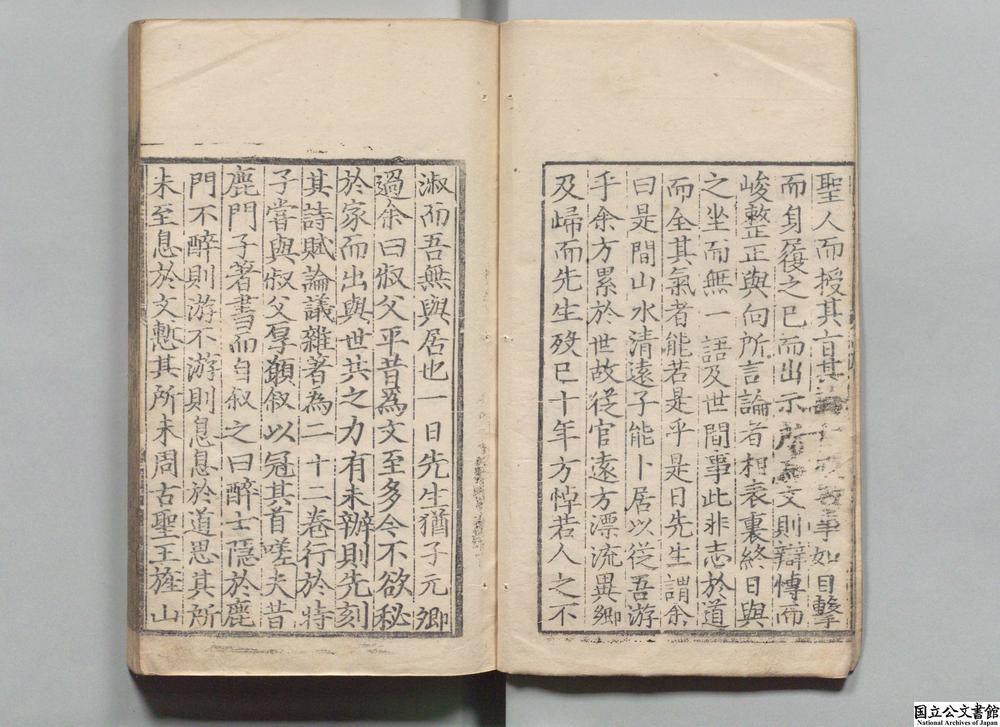 聖人而授其言其事如目擊
而身履之已而出示所為文則辯博而
峻整正與向所言論者相表裏終日與
之坐而無一語及世間事此非志於道
而全其氣者能若是乎是日先生謂余
曰是間山水清遠子能卜居以從吾游
乎余方累於世故從官遠方漂流異鄉
及歸而先生歿已十年方悼若人之不
淑而吾無與居也一日先生猶子元卿
過余曰叔父平昔為文至多今不欲秘
於家而出與世共之力有未辦則先刻
其詩賦論議雜著為二十二卷行於時
子嘗與叔父厚願叙以冠其首嗟夫昔
鹿門子著書而自叙之曰醉士隱於鹿
門不醉則游不游則息息於道思其所
未至息於文慙其所未周古聖王旌山
国立公文書館
National Archives of Japan